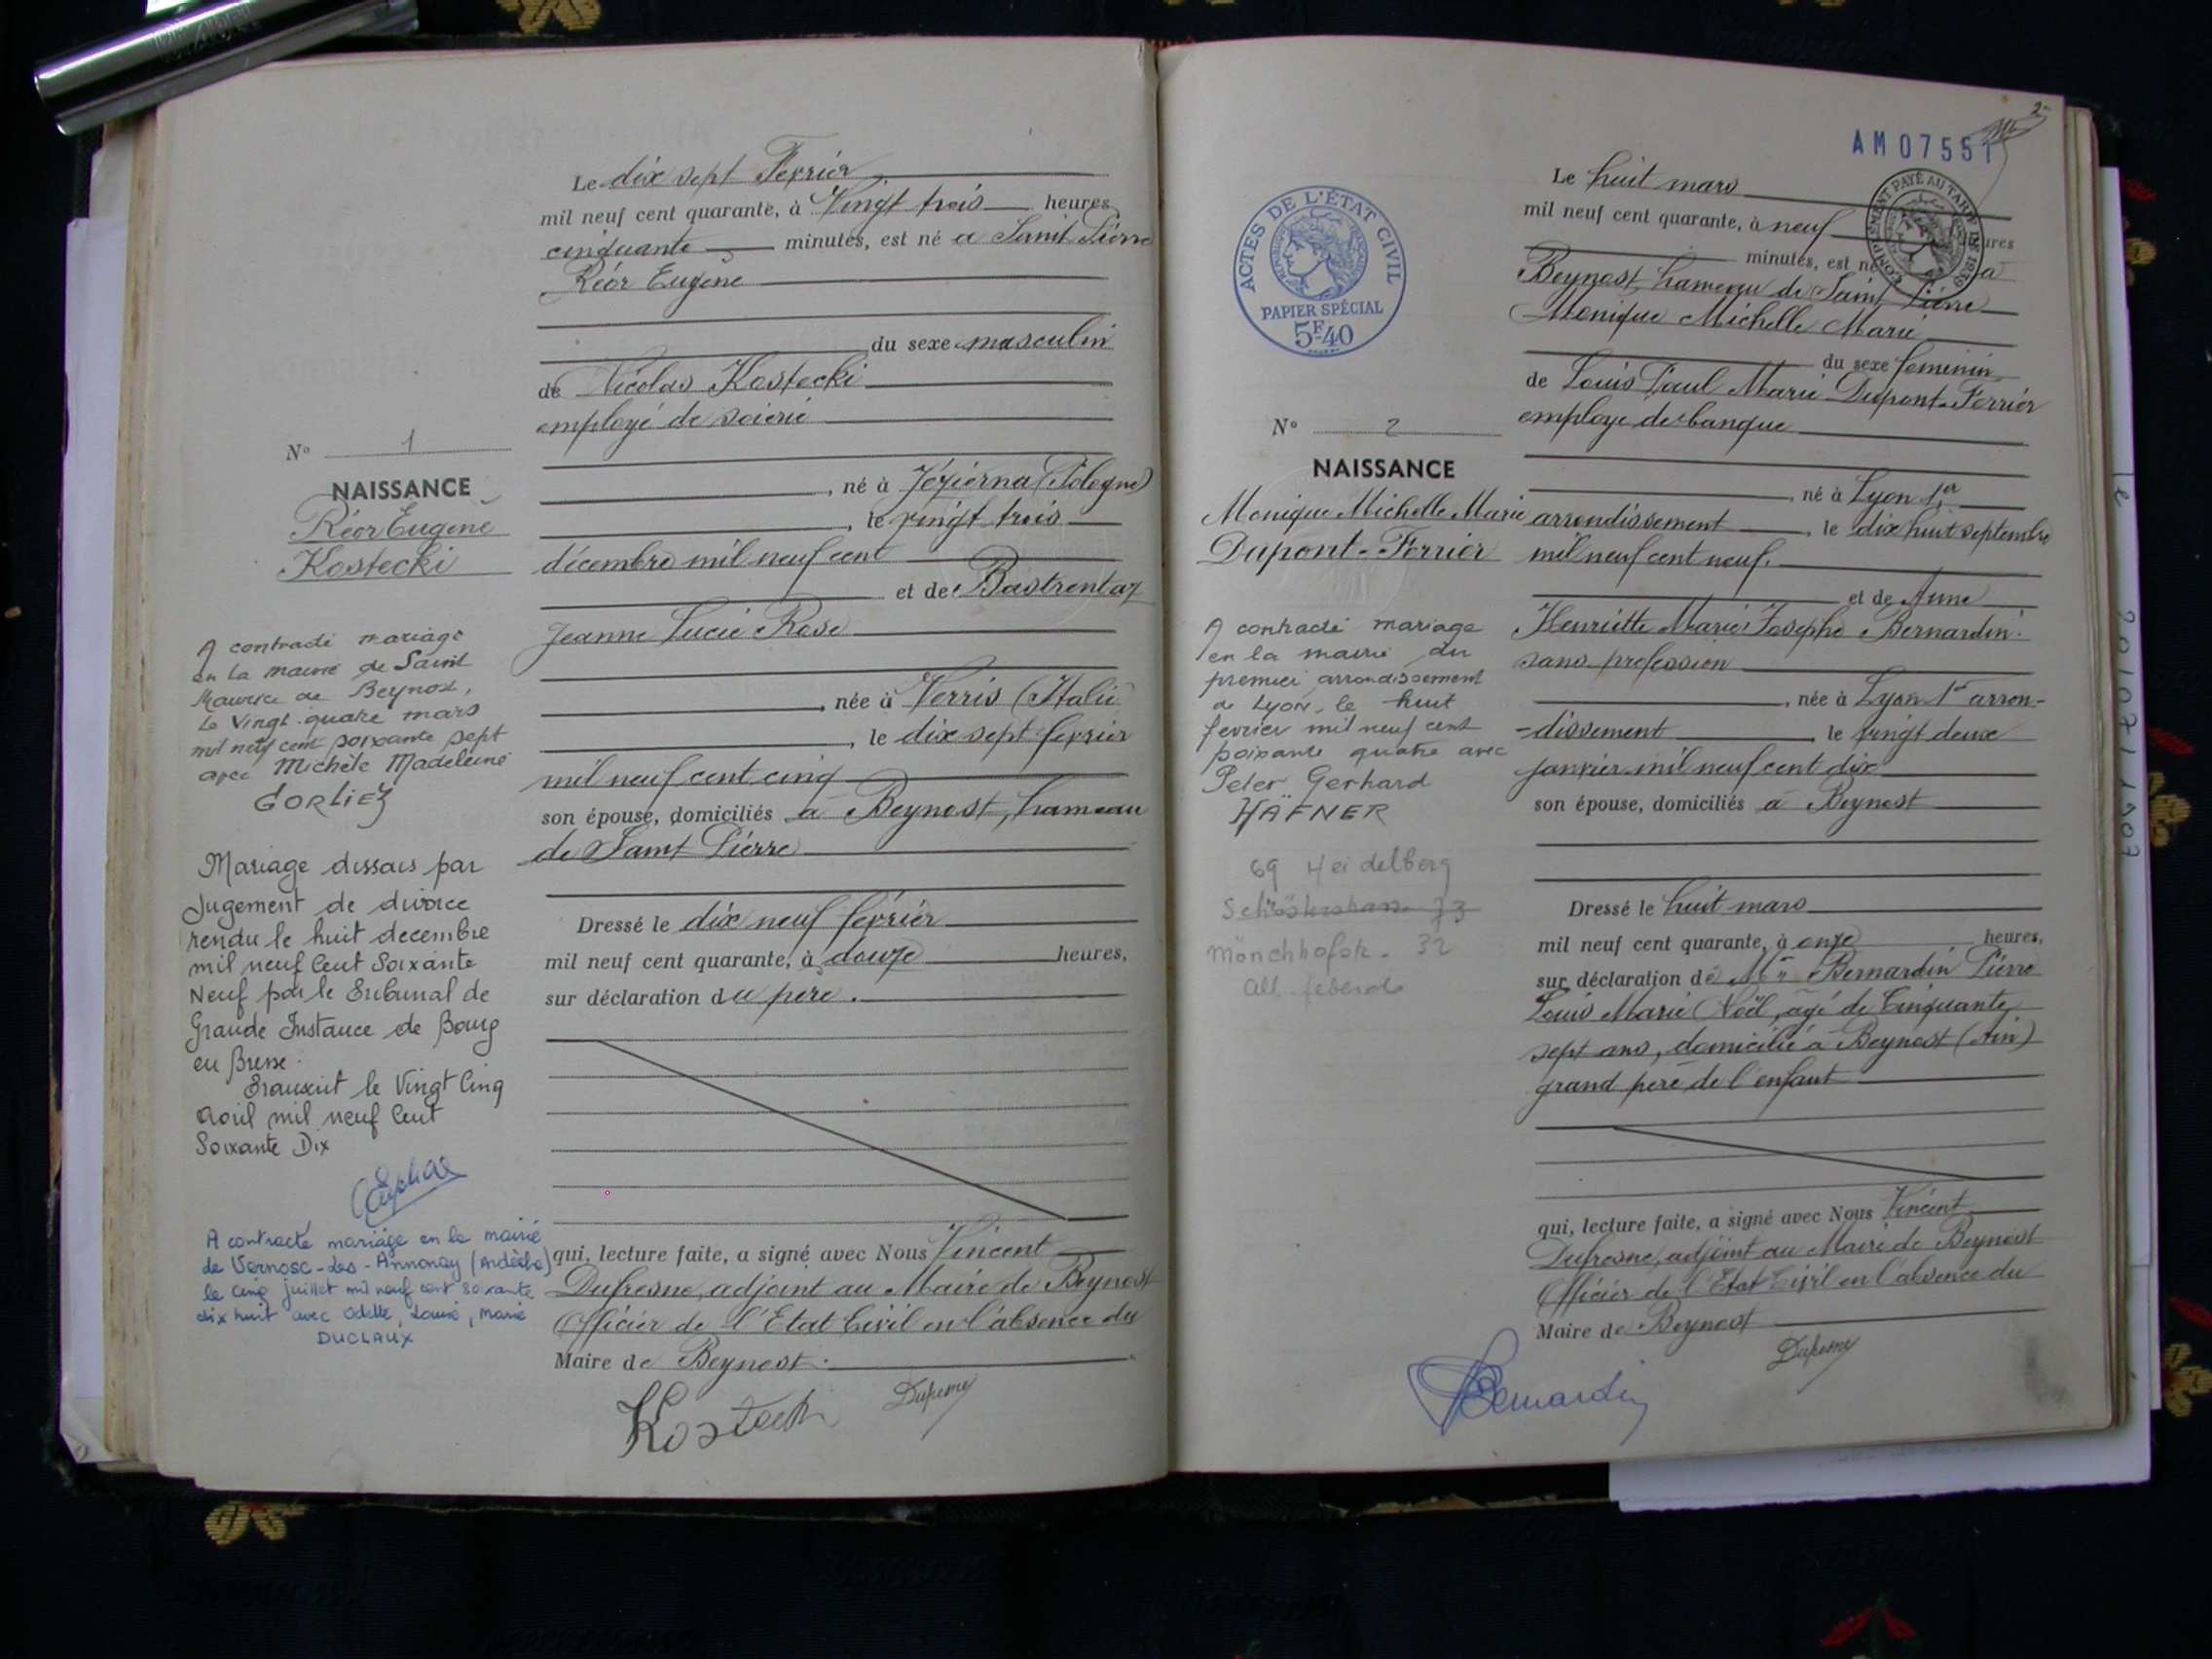 Le dix sept Fevrier
mil neuf cent quarante, à Vingt trois heures
cinquante minutes, est né à Saint Pierre
Réor Eugène
du sexe masculin
de Nicolas Kostecki
employé de soierie
, né à Jézierna (Pologne)
, le vingt trois
décembre mil neuf cent
et de Bastrentaz
Jeanne Lucie Rose
, née à Verris (Italie
, le dix sept fevrier
mil neuf cent cinq
son épouse, domiciliés à Beynost, hameau
de Saint Pierre
Dressé le dix neuf février
mil neuf cent quarante, à douze heures,
sur déclaration du père.
qui, lecture faite, a signé avec Nous Vincent
Dufresne, adjoint au Maire de Beynost
Officier de l'Etat Civil en l'absence du
Maire de Beynost.
N° 1
NAISSANCE
Réor Eugène
Kostecki
A contracté mariage
en la mairie de Saint
Maurice de Beynost,
le Vingt quatre mars
mil neuf cent soixante sept
avec Michèle Madeleine
GORLIEZ
Mariage dissous par
Jugement de divorce
rendu le huit decembre
mil neuf Cent Soixante
Neuf par le Tribunal de
Grande Instance de Bourg
en Bresse.
Transcrit le Vingt Cinq
Avril mil neuf Cent
Soixante Dix
A contracté mariage en la mairie
de Vernosc-les-Annonay (Ardèche)
le cinq juillet mil neuf cent soixante
dix huit avec Odette, Louise, Marie
DUCLAUX
AM 07551
2
ACTES DE L'ÉTAT CIVIL
PAPIER SPÉCIAL
5F.40
COMPLEMENT PAYÉ AU TARIF DE 1939
Le huit mars
mil neuf cent quarante, à neuf heures
minutes, est né à
Beynost, hameau de Saint Pierre
Monique Michelle Marie
du sexe feminin
de Louis Paul Marie Dupont-Ferrier
employé de banque
, né à Lyon 1er
arrondissement, le dix huit septembre
mil neuf cent neuf.
et de Anne
Henriette Marie Josephe Bernardin.
sans profession
, née à Lyon 1er arron-
-dissement le vingt deux
janvier mil neuf cent dix
son épouse, domiciliés à Beynost
Dressé le huit mars
mil neuf cent quarante, à onze heures,
sur déclaration de Mr Bernardin Pierre
Louis Marie Noël, âgé de Cinquante
sept ans, domicilié à Beynost (Ain)
grand père de l'enfant
qui, lecture faite, a signé avec Nous Vincent
Dufresne, adjoint au Maire de Beynost
Officier de l'Etat Civil en l'absence du
Maire de Beynost
Dufresne
Bernardin
N° 2
NAISSANCE
Monique Michelle Marie
Dupont-Ferrier
A contracté mariage
en la mairie du
premier arrondissement
de Lyon, le huit
fevrier mil neuf cent
soixante quatre avec
Peter Gerhard
HÄFNER
69 Heidelberg
73
Mönchhofstr. 32
All. federale